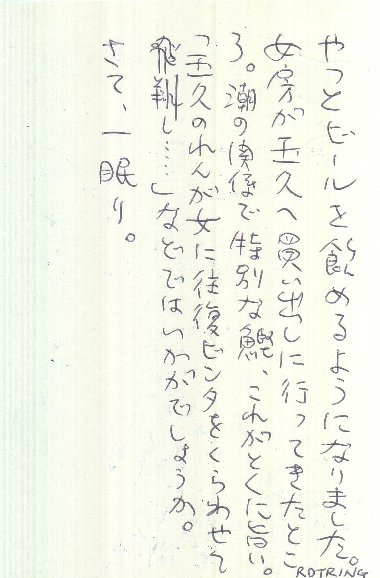 やっとビールを飲めるようになりました。
女房が玉久へ買い出しに行ってきたとこ
ろ。潮の関係で特別な鰹、これがとくに旨い。
「玉久のれんが女に往復ビンタをくらわせて
飛翔し……」などではいかがでしょうか。
さて、一眠り。
ROTRING